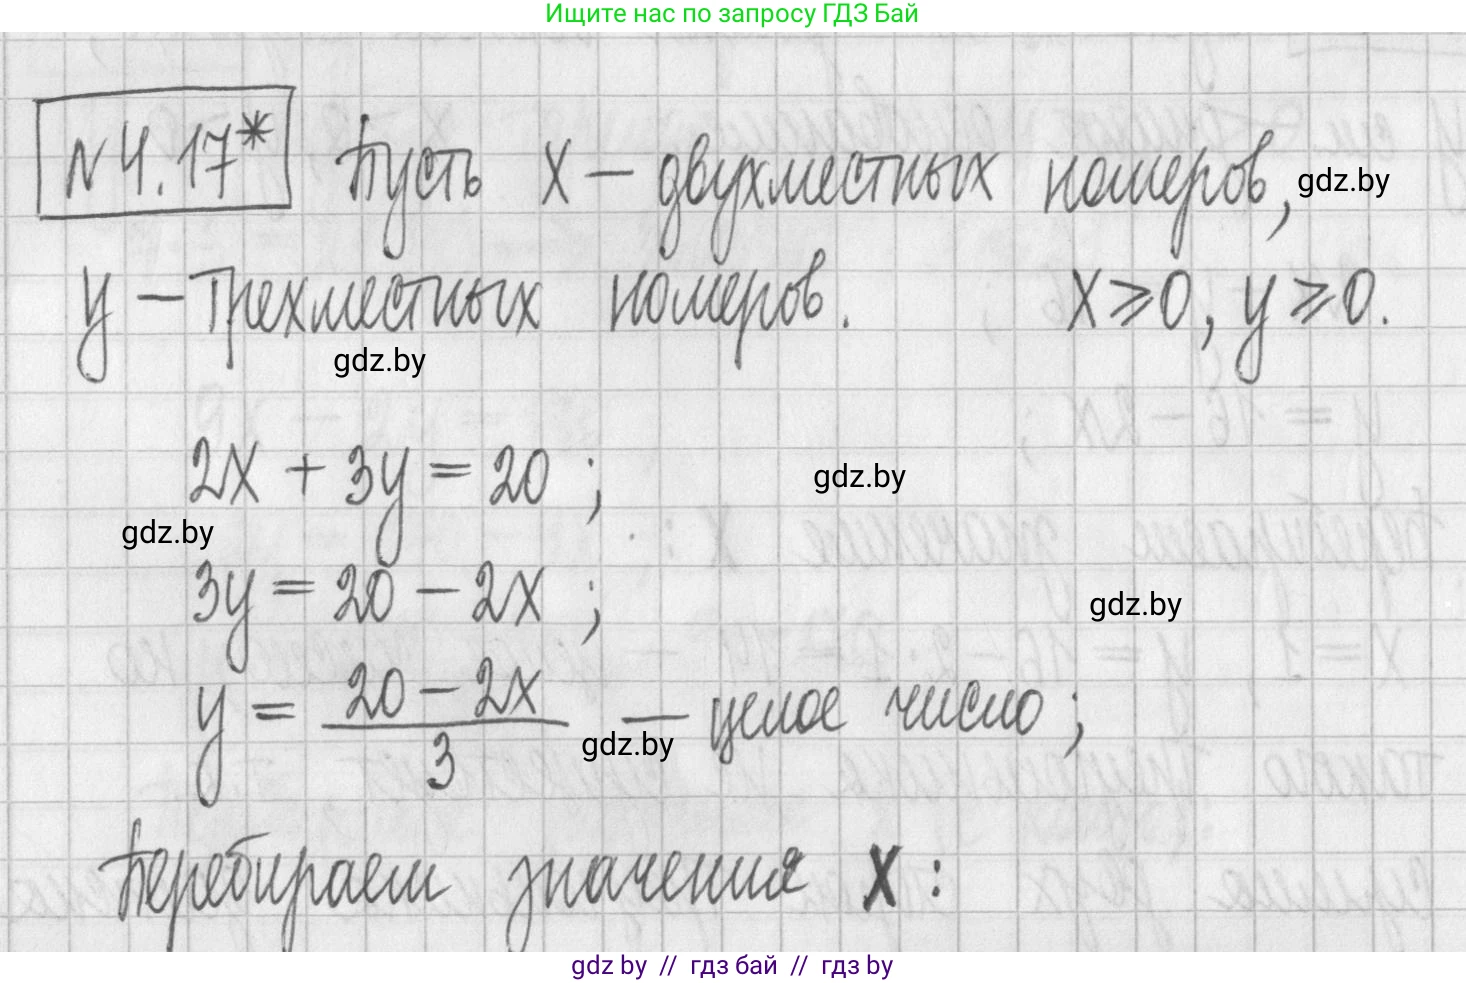 Ищите нас по запросу ГДЗ Бай
N 4.17* Пусть X – двухместных номеров, gdz.by
y – трехместных номеров. X ⩾ 0, y ⩾ 0.
gdz.by
2X + 3y = 20 ; gdz.by
gdz.by
3y = 20 – 2X ; gdz.by
y = (20 – 2X)/3 – целое число ;
gdz.by
Перебираем значения X :
gdz by // гдз бай // гдз by